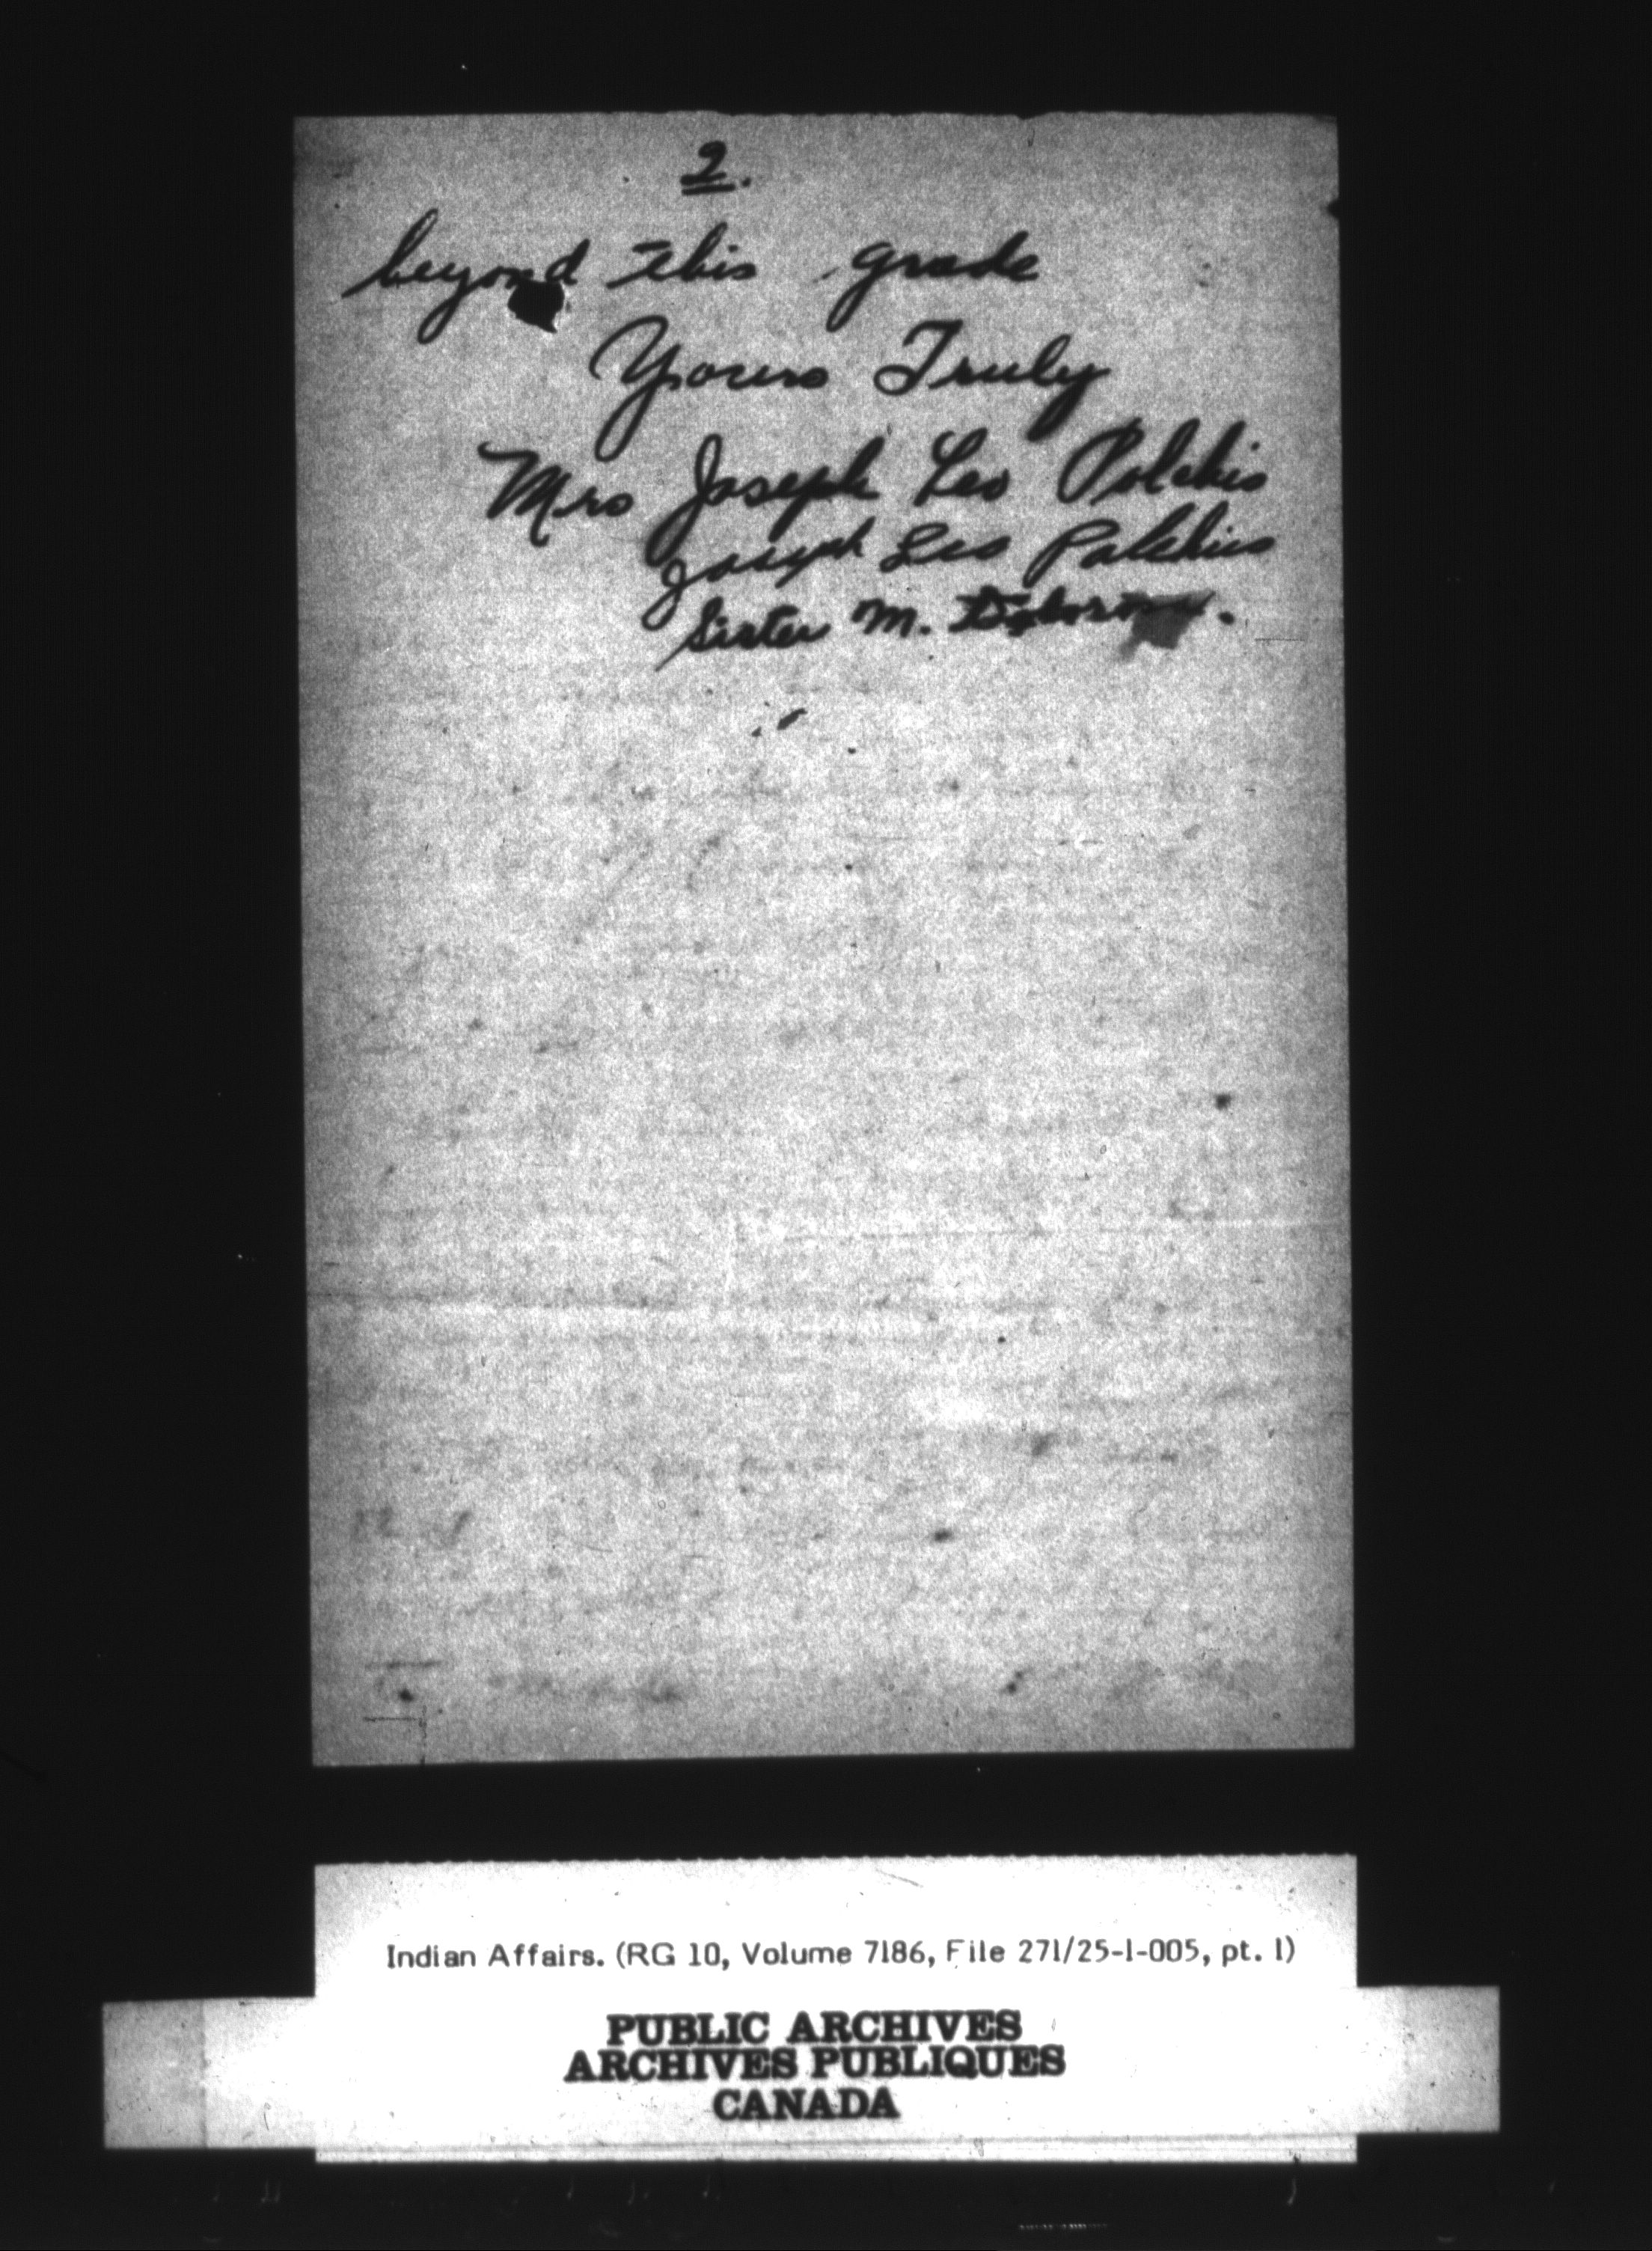 2.
beyond this grade
Yours Truly
Mrs Joseph Leo Polchis
Joseph Leo Palchies
Sister M. Dolorosa.
Indian Affairs. (RG 10, Volume 7186, File 271/25-1-005, pt. 1)
PUBLIC ARCHIVES
ARCHIVES PUBLIQUES
CANADA